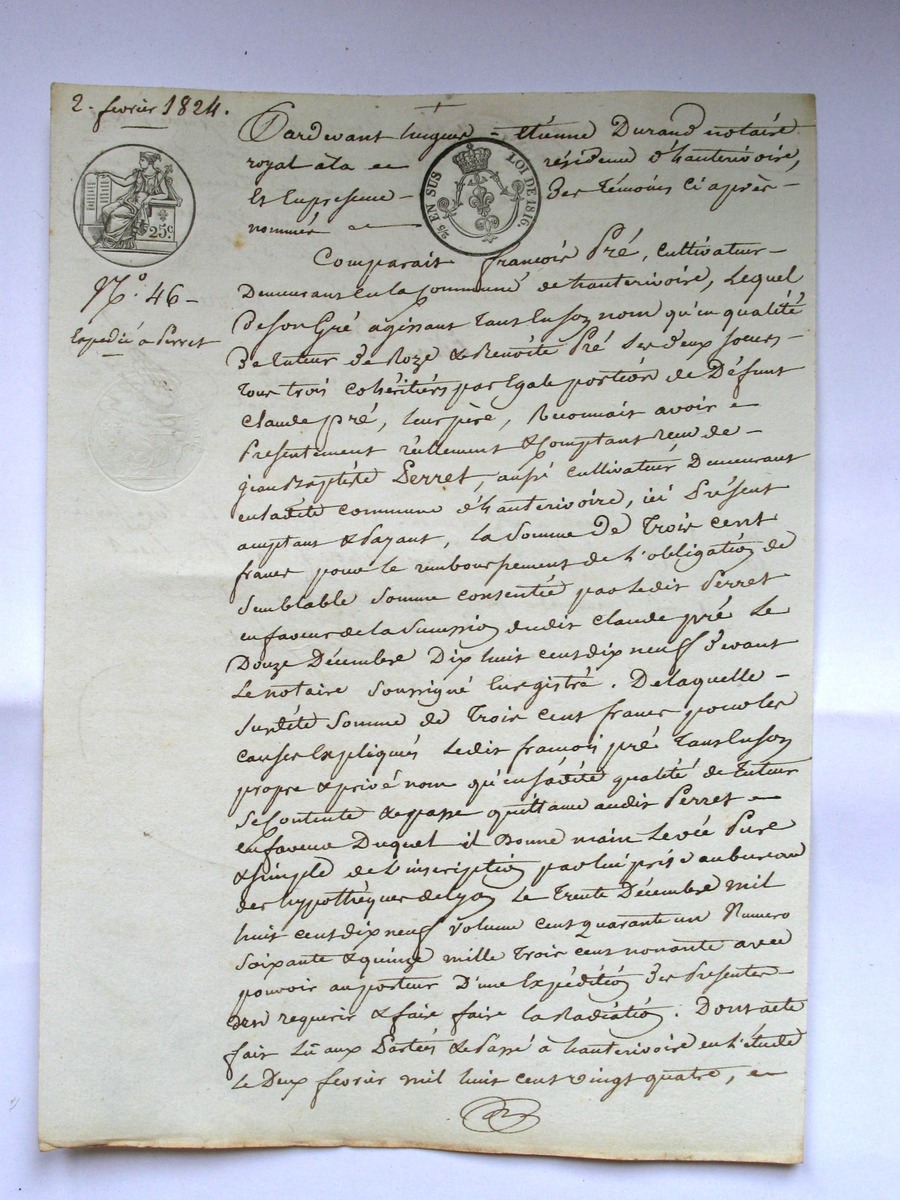 2. fevrier 1824.
Pardevant hugues = etienne Durand notaire
royal à la résidence d'hauterivoire,
Et En presence des témoins Ci après -
nommés
25c
2/5 EN SUS LOI DE 1816.
N.o 46 -
Expedié a Perret
Comparait françois Pré, Cultivateur -
Demeurant En la Commune de hauterivoire, Lequel
De son Gré agissant tant En son nom qu'en qualité
De tuteur de Roze & Benoite Pré Ses deux Soeurs -
tous trois cohéritiers par Egale portion de Défunt
Claude pré, leur père, Reconnait avoir
Presentement réellement & Comptant reçu de -
jean Baptiste Perret, aussi cultivateur Demeurant
en ladite commune d'hauterivoire, ici Présent
acceptant & Payant, la Somme de Trois cent
francs pour le remboursement de l'obligation de
Semblable Somme consentie par Ledit Perret
en faveur de la Succession dudit Claude pré Le
Douze Décembre Dix huit cent dix neuf devant
Le notaire Soussigné Enregistré. De laquelle -
Susdite Somme de Trois cent francs pour les
causes Expliqués Ledit françois pré tant En son
propre & privé nom qu'en sadite qualité de tuteur
Se Contente & passe quittance audit Perret
En faveur Duquel il Donne main Levée Pure
& simple de L'inscription par lui prise au bureau
des hypothèques de Lyon Le Trente Décembre mil
huit cent dix neuf volume cent quarante un Numero
Soixante & quinze mille Trois cent nonante avec
pouvoir au porteur D'une Expédition des Presentes
d'en requerir & faire faire la Radiation. Dont acte
fait Lû aux Parties & Passé à hauterivoire en L'étude
Le Deux fevrier mil huit cent vingt quatre, en